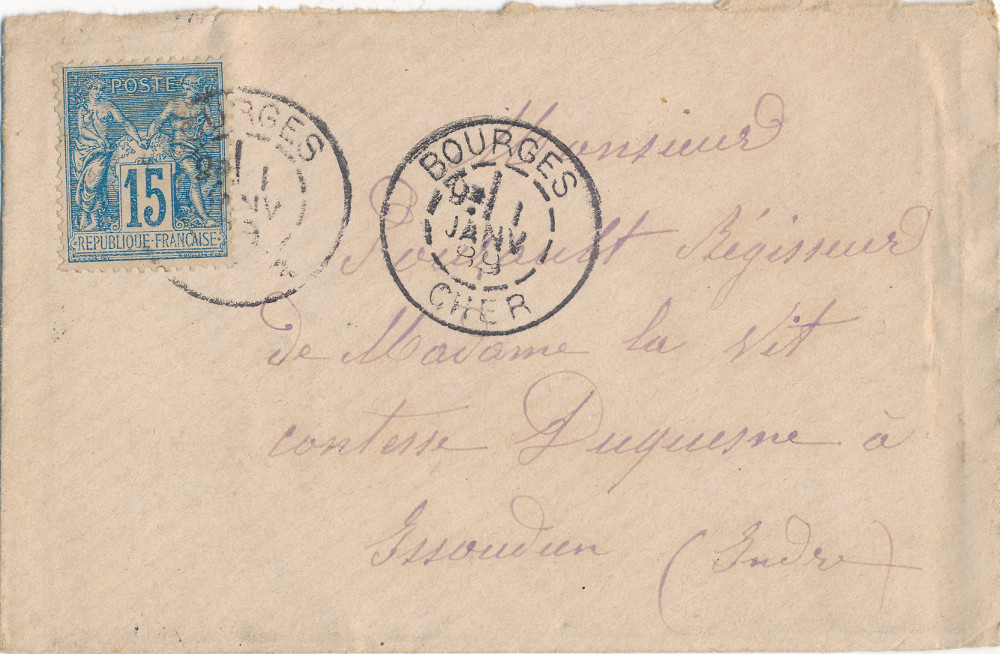 POSTES
15
REPUBLIQUE FRANÇAISE
BOURGES
1
JANV
BOURGES
1
JANV
89
CHER
Monsieur
Régisseur
de Madame la Vit
contesse Duquesne à
Issoudun (Indre)